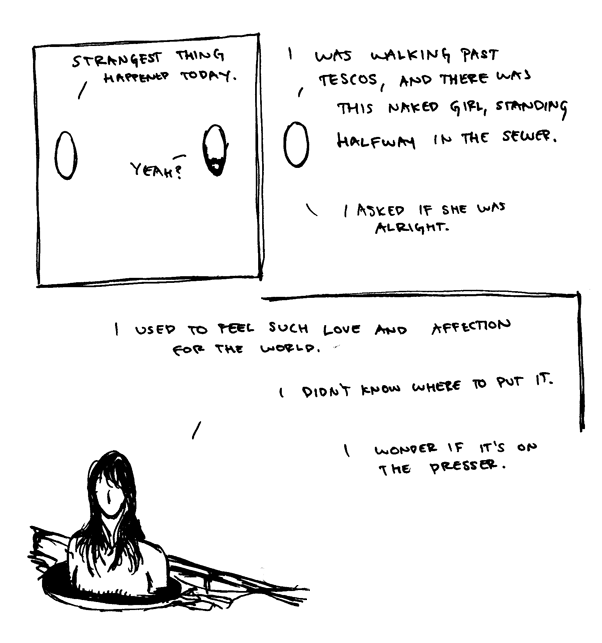 STRANGEST THING
HAPPENED TODAY.
YEAH?
I WAS WALKING PAST
TESCOS, AND THERE WAS
THIS NAKED GIRL, STANDING
HALFWAY IN THE SEWER.
I ASKED IF SHE WAS
ALRIGHT.
I USED TO FEEL SUCH LOVE AND AFFECTION
FOR THE WORLD.
I DIDN'T KNOW WHERE TO PUT IT.
I WONDER IF IT'S ON
THE DRESSER.